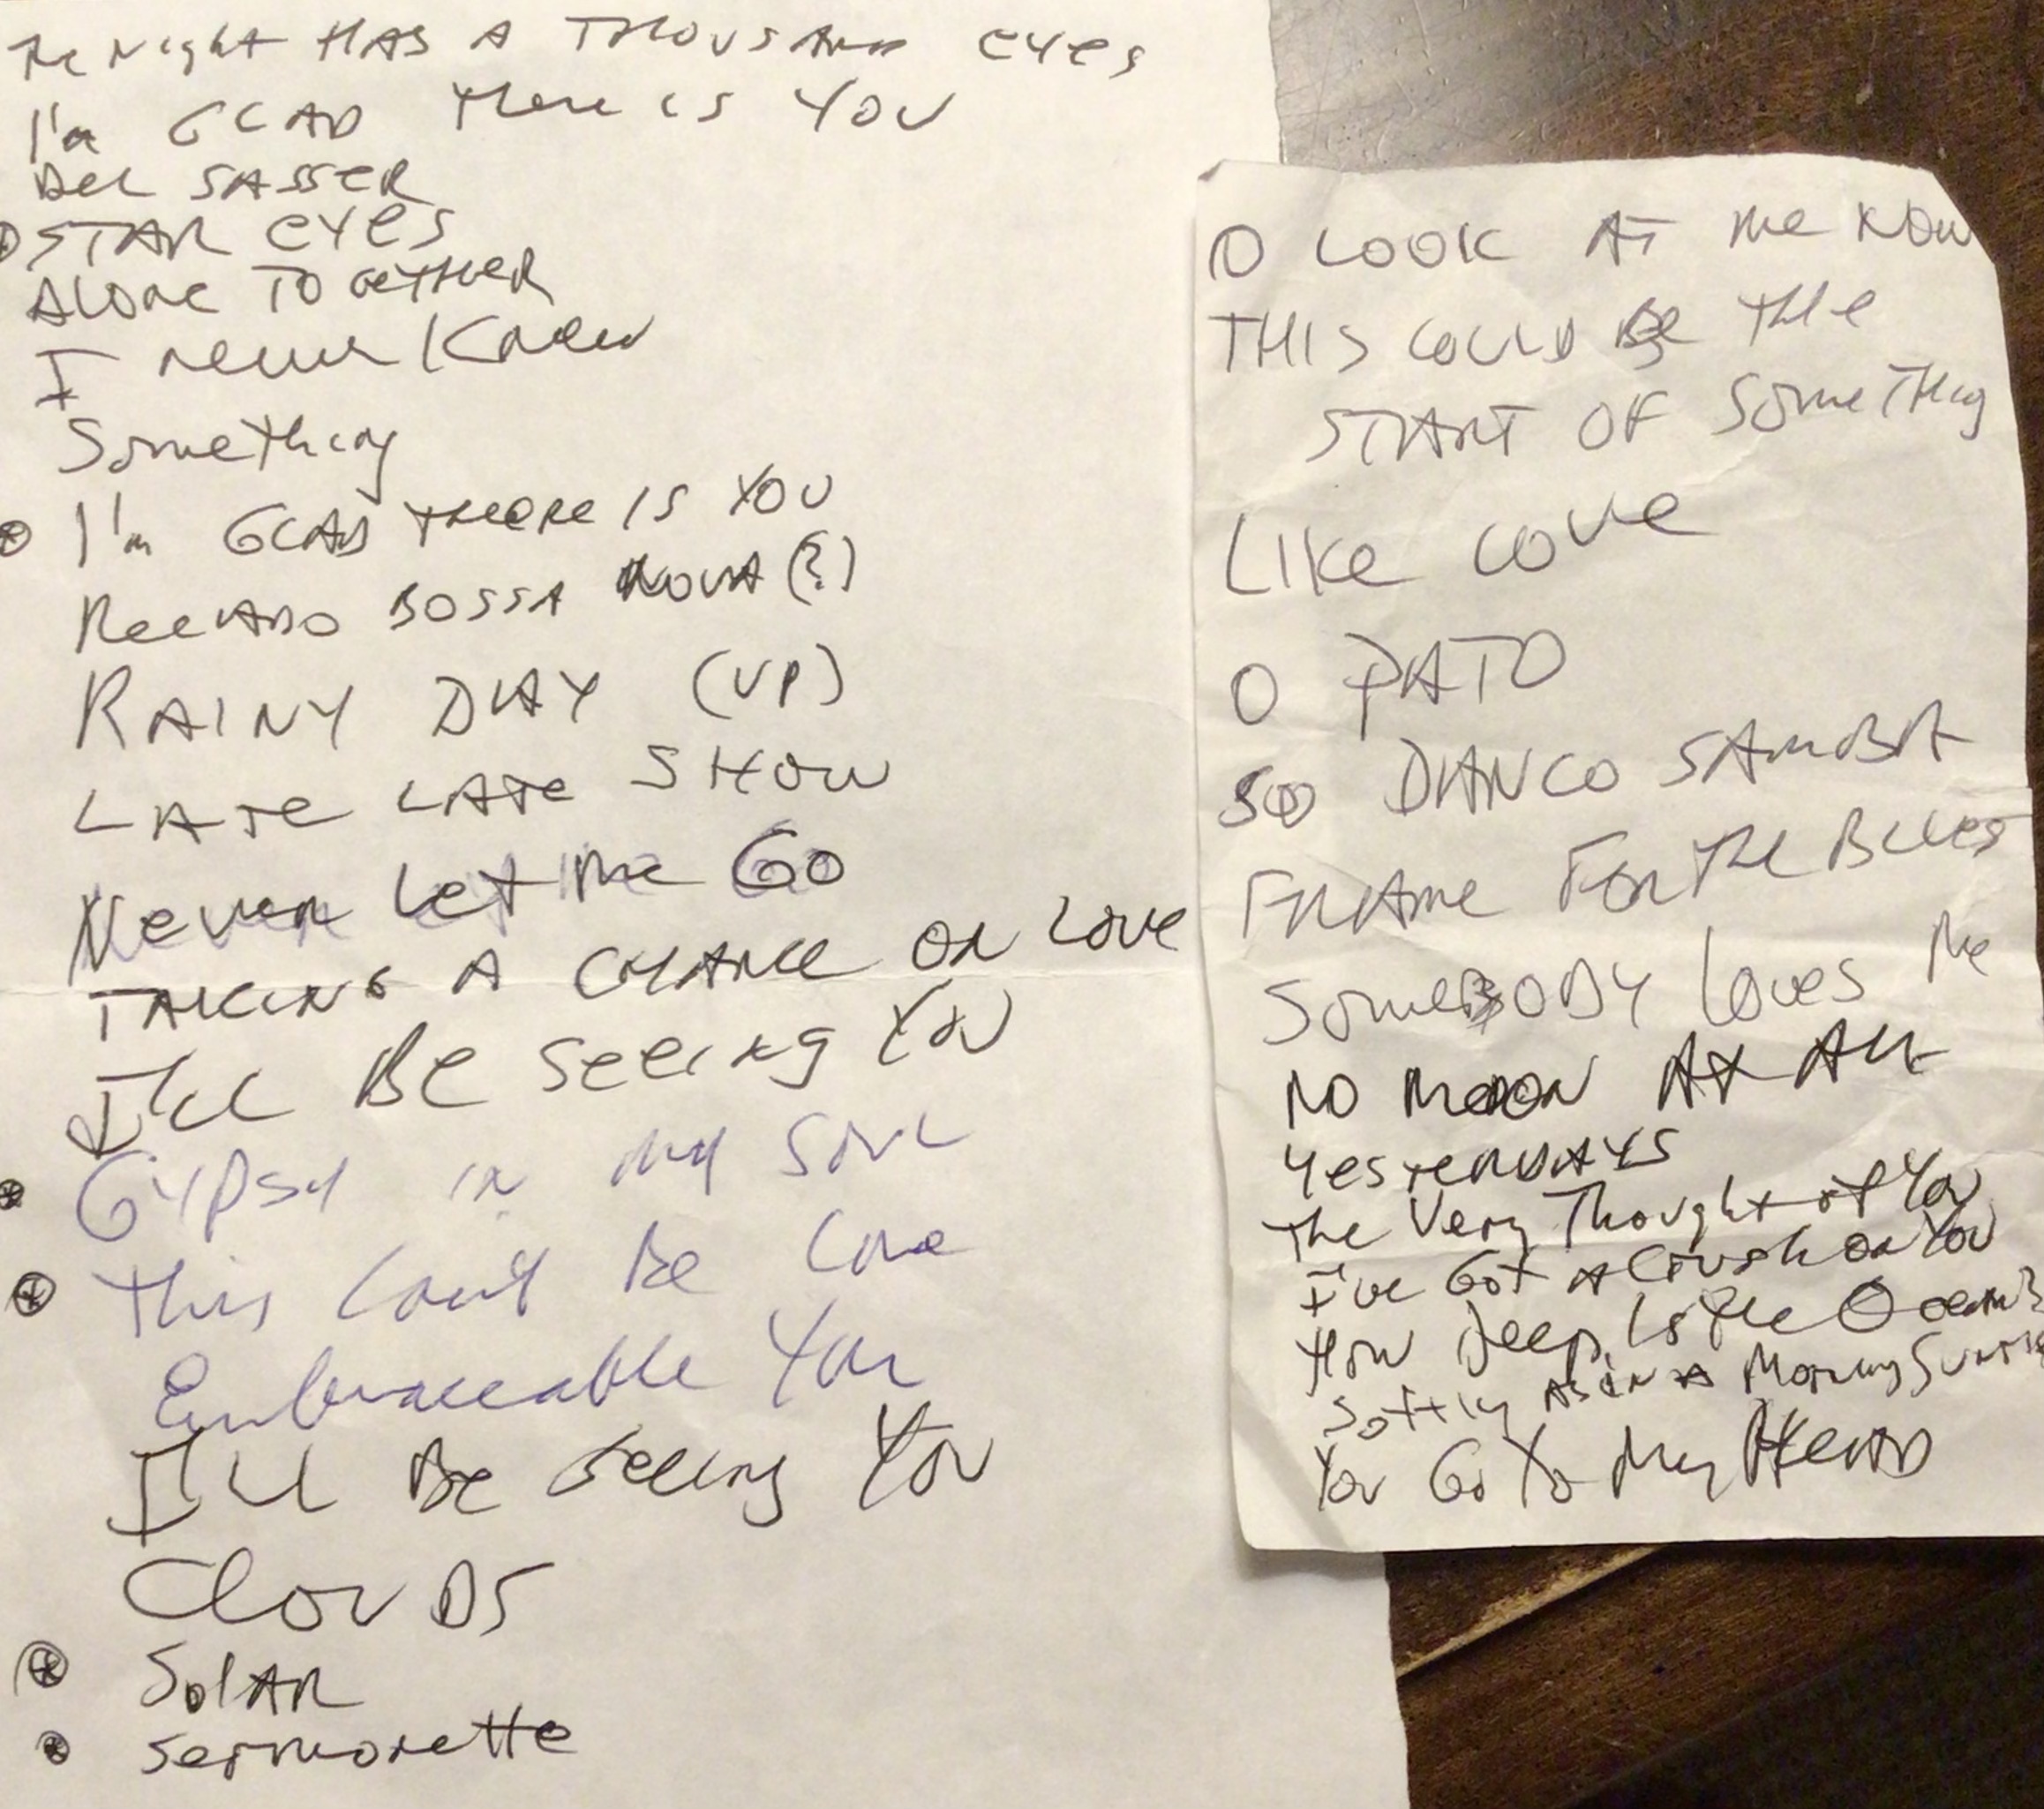 The Night HAS A THOUSAND eyes
I'm GLAD there is YOU
Del SASSER
STAR eyes
Alone TOGETHER
I never Knew
Something
I'm GLAD THERE IS YOU
RecADO BOSSA NOVA (?)
RAINY DAY (UP)
LATE LATE SHOW
Never Let Me Go
TAKING A CHANCE ON LOVE
I'll Be Seeing You
Gypsy in My Soul
This Can't Be Love
Embraceable You
I'll Be Seeing You
ClouDS
SolAR
Sermonette
O LOOK AT me NOW
THIS COULD Be The
START OF SomeTHing
LIKe Love
O PATO
SO DANCO SAMBA
FRAMe For The Blues
SomeBODY Loves Me
NO MOON At All
YesterDAYS
The Very Thought of You
I've Got A Crush on You
How Deep Is The Ocean?
Softly As in A Morning Sunrise
You Go To My HeAD